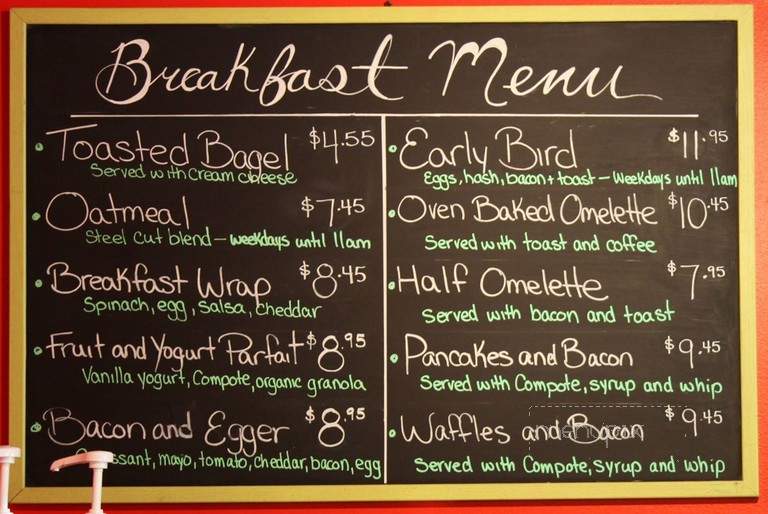 Breakfast Menu
Toasted Bagel $4.55
Served with cream cheese
Oatmeal $7.45
Steel cut blend - weekdays until 11am
Breakfast Wrap $8.45
Spinach, egg, salsa, cheddar
Fruit and Yogurt Parfait $8.95
Vanilla yogurt, Compote, organic granola
Bacon and Egger $8.95
mayo, tomato, cheddar, bacon, egg
Early Bird $11.95
Eggs, hash, bacon + toast - weekdays until 11am
Oven Baked Omelette $10.45
Served with toast and coffee
Half Omelette $7.95
Served with bacon and toast
Pancakes and Bacon $9.45
Served with Compote, syrup and whip
Waffles and Bacon $9.45
Served with Compote, syrup and whip